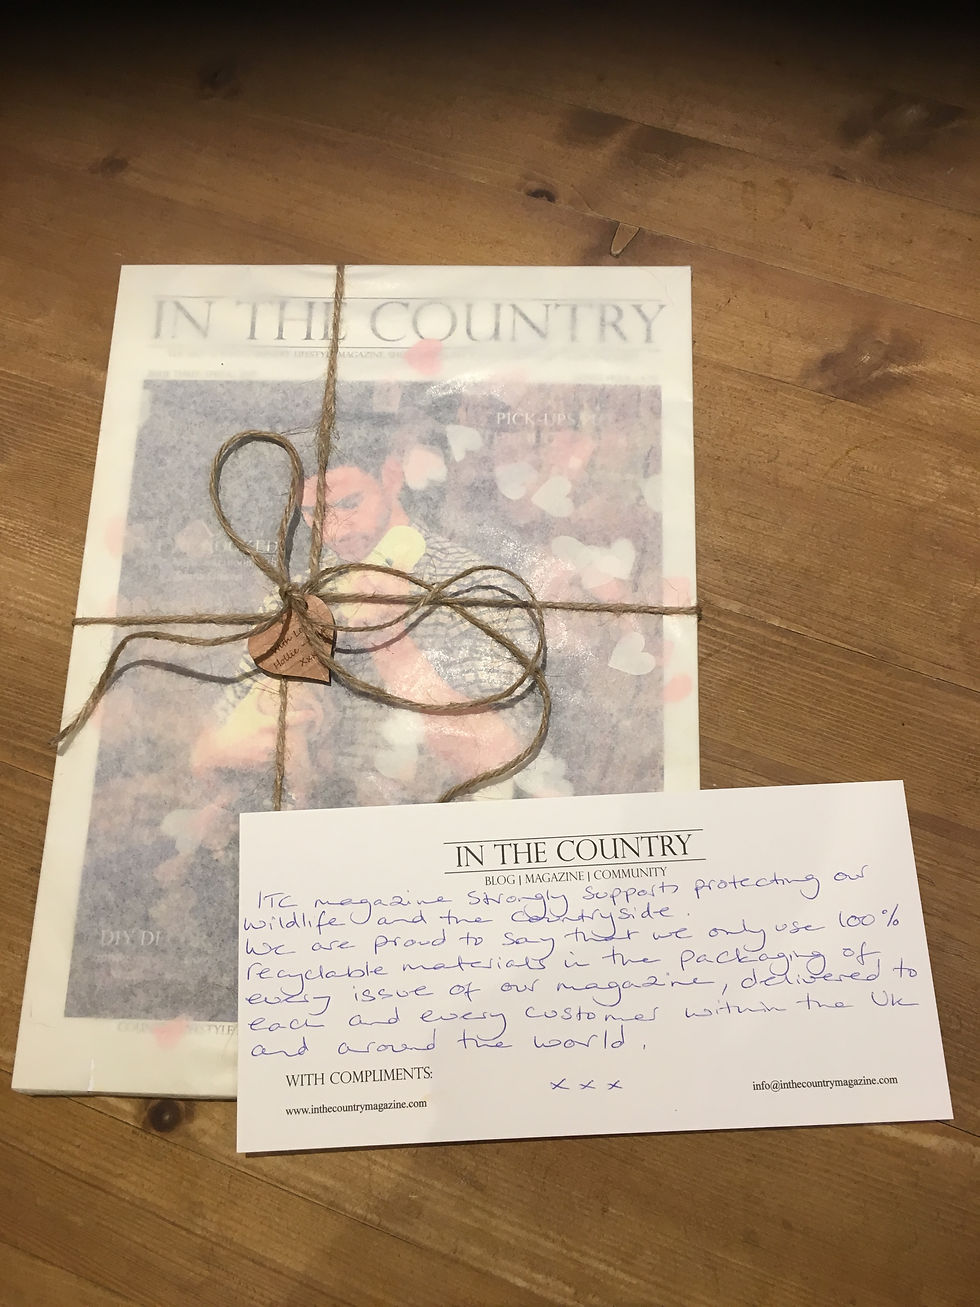 IN THE COUNTRY
LIFESTYLE MAGAZINE
PICK-UPS
DIY
Hollie
xxx
IN THE COUNTRY
BLOG | MAGAZINE | COMMUNITY
ITC magazine strongly supports protecting our
wildlife and the countryside.
We are proud to say that we only use 100%
recyclable materials in the packaging of
every issue of our magazine, delivered to
each and every customer within the UK
and around the world.
WITH COMPLIMENTS:
x x x
www.inthecountrymagazine.com
info@inthecountrymagazine.com